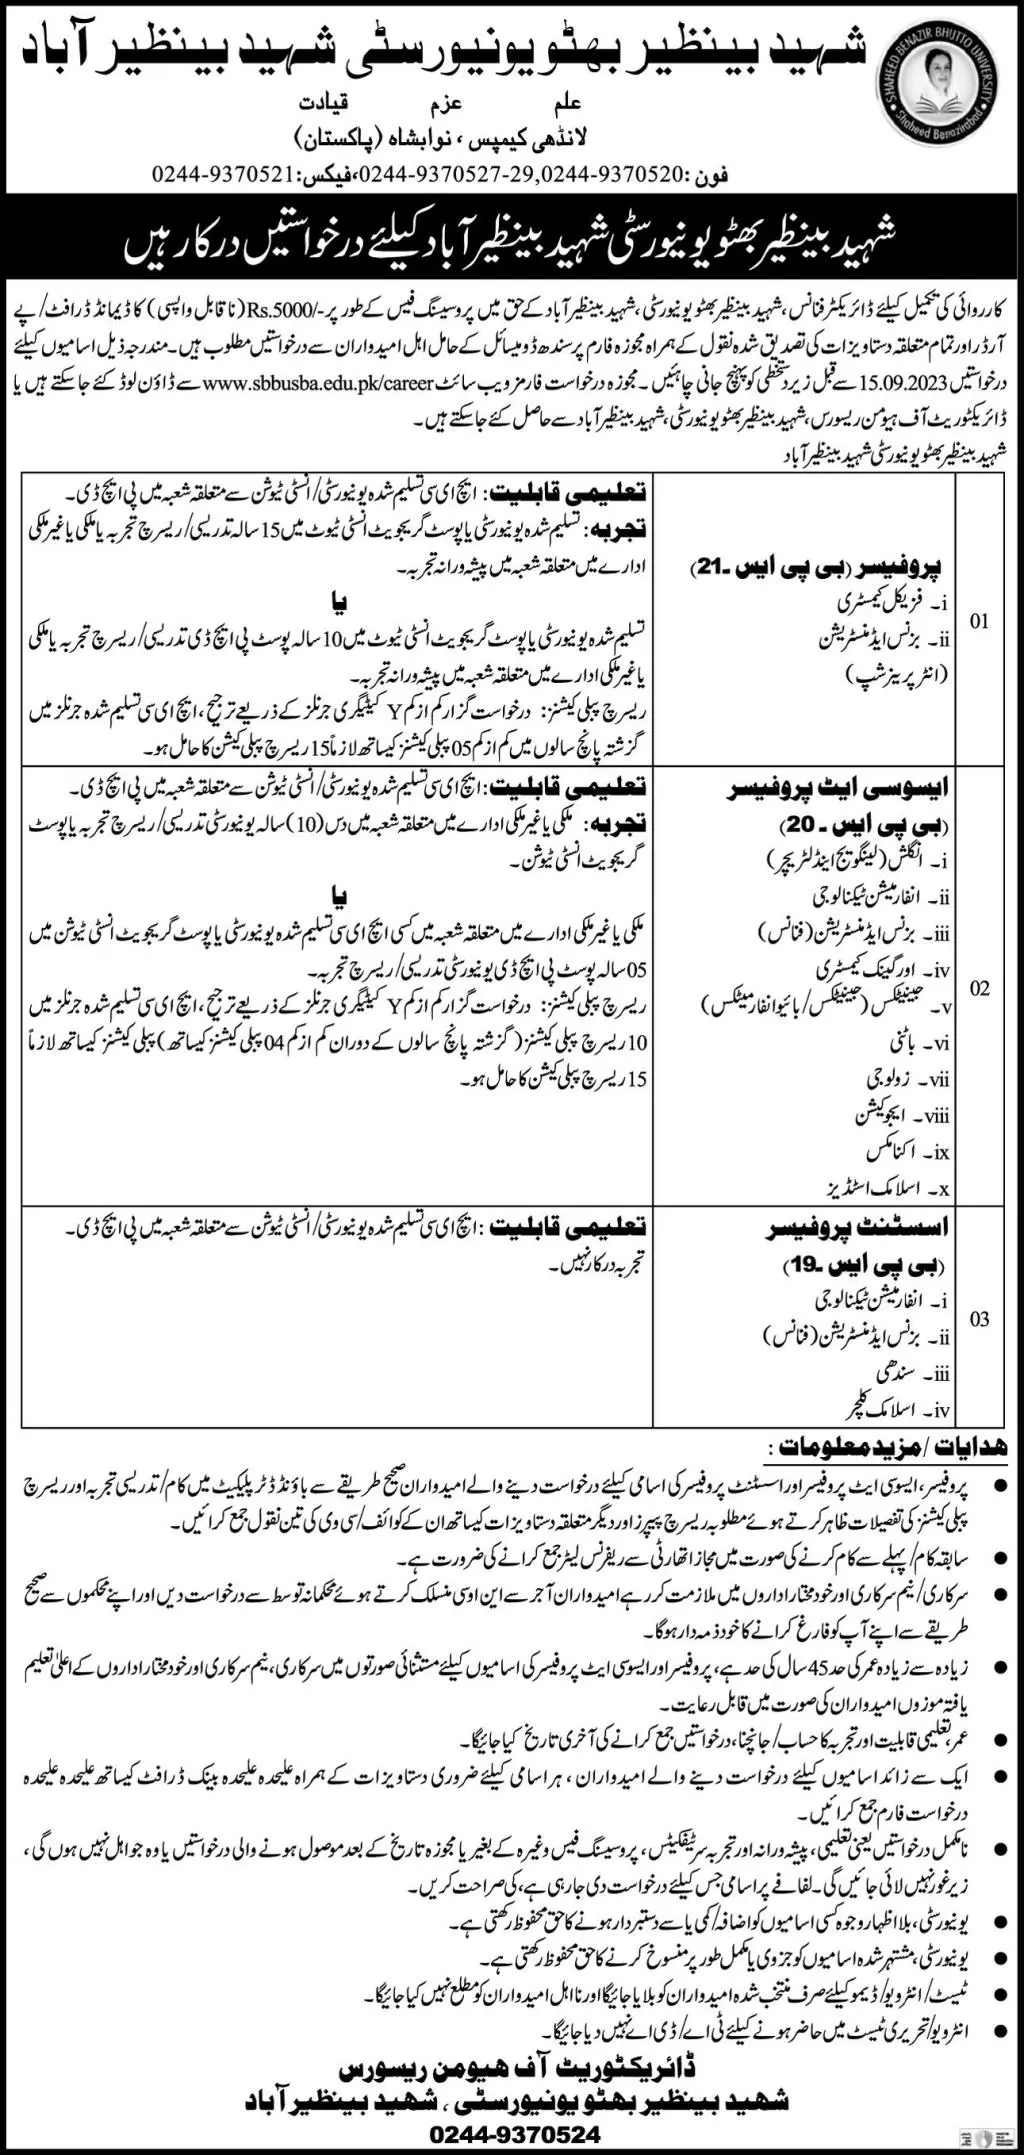 شہید بینظیر بھٹو یونیورسٹی شہید بینظیر آباد
SHAHEED BENAZIR BHUTTO UNIVERSITY
Shaheed Benazirabad
علم عزم قیادت
لانڈھی کیمپس، نوابشاہ (پاکستان)
فون: 0244-9370527-29,0244-9370520، فیکس: 0244-9370521
شہید بینظیر بھٹو یونیورسٹی شہید بینظیر آباد کیلئے درخواستیں درکار ہیں
کارروائی کی تکمیل کیلئے ڈائریکٹر فنانس، شہید بینظیر بھٹو یونیورسٹی، شہید بینظیر آباد کے حق میں پروسیسنگ فیس کے طور پر -/Rs.5000 (ناقابل واپسی) کا ڈیمانڈ ڈرافٹ/ پے
آرڈر اور تمام متعلقہ دستاویزات کی تصدیق شدہ نقول کے ہمراہ مجوزہ فارم پر سندھ ڈومیسائل کے حامل اہل امیدواران سے درخواستیں مطلوب ہیں۔ مندرجہ ذیل اسامیوں کیلئے
درخواستیں 15.09.2023 سے قبل زیر دستخطی کو پہنچ جانی چاہئیں۔ مجوزہ درخواست فارمز ویب سائٹ www.sbbusba.edu.pk/career سے ڈاؤن لوڈ کئے جاسکتے ہیں یا
ڈائریکٹوریٹ آف ہیومن ریسورس، شہید بینظیر بھٹو یونیورسٹی، شہید بینظیر آباد سے حاصل کئے جاسکتے ہیں۔
شہید بینظیر بھٹو یونیورسٹی شہید بینظیر آباد
01
پروفیسر (بی پی ایس۔21)
i۔ فزیکل کیمسٹری
ii۔ بزنس ایڈمنسٹریشن
(انٹرپرینرشپ)
تعلیمی قابلیت: ایچ ای سی تسلیم شدہ یونیورسٹی/ انسٹی ٹیوشن سے متعلقہ شعبہ میں پی ایچ ڈی۔
تجربہ: تسلیم شدہ یونیورسٹی یا پوسٹ گریجویٹ انسٹی ٹیوٹ میں 15 سالہ تدریسی/ ریسرچ تجربہ یا ملکی یا غیر ملکی
ادارے میں متعلقہ شعبہ میں پیشہ ورانہ تجربہ۔
یا
تسلیم شدہ یونیورسٹی یا پوسٹ گریجویٹ انسٹی ٹیوٹ میں 10 سالہ پوسٹ پی ایچ ڈی تدریسی/ ریسرچ تجربہ یا ملکی
یا غیر ملکی ادارے میں متعلقہ شعبہ میں پیشہ ورانہ تجربہ۔
ریسرچ پبلی کیشنز: درخواست گزار کم از کم Y کیٹیگری جرنلز کے ذریعے ترجیح، ایچ ای سی تسلیم شدہ جرنلز میں
گزشتہ پانچ سالوں میں کم از کم 05 پبلی کیشنز کیساتھ لازماً 15 ریسرچ پبلی کیشن کا حامل ہو۔
02
ایسوسی ایٹ پروفیسر
(بی پی ایس۔20)
i۔ انگلش (لینگویج اینڈ لٹریچر)
ii۔ انفارمیشن ٹیکنالوجی
iii۔ بزنس ایڈمنسٹریشن (فنانس)
iv۔ اورگینک کیمسٹری
v۔ جینیٹکس (جینیٹکس/ بائیو انفارمیٹکس)
vi۔ باٹنی
vii۔ زولوجی
viii۔ ایجوکیشن
ix۔ اکنامکس
x۔ اسلامک اسٹڈیز
تعلیمی قابلیت: ایچ ای سی تسلیم شدہ یونیورسٹی/ انسٹی ٹیوشن سے متعلقہ شعبہ میں پی ایچ ڈی۔
تجربہ: ملکی یا غیر ملکی ادارے میں متعلقہ شعبہ میں دس (10) سالہ یونیورسٹی تدریسی/ ریسرچ تجربہ یا پوسٹ
گریجویٹ انسٹی ٹیوشن۔
یا
ملکی یا غیر ملکی ادارے میں متعلقہ شعبہ میں کسی ایچ ای سی تسلیم شدہ یونیورسٹی یا پوسٹ گریجویٹ انسٹی ٹیوشن میں
05 سالہ پوسٹ پی ایچ ڈی یونیورسٹی تدریسی/ ریسرچ تجربہ۔
ریسرچ پبلی کیشنز: درخواست گزار کم از کم Y کیٹیگری جرنلز کے ذریعے ترجیح، ایچ ای سی تسلیم شدہ جرنلز میں
10 ریسرچ پبلی کیشنز (گزشتہ پانچ سالوں کے دوران کم از کم 04 پبلی کیشنز کیساتھ) پبلی کیشنز کیساتھ لازماً
15 ریسرچ پبلی کیشن کا حامل ہو۔
03
اسسٹنٹ پروفیسر
(بی پی ایس۔19)
i۔ انفارمیشن ٹیکنالوجی
ii۔ بزنس ایڈمنسٹریشن (فنانس)
iii۔ سندھی
iv۔ اسلامک کلچر
تعلیمی قابلیت: ایچ ای سی تسلیم شدہ یونیورسٹی/ انسٹی ٹیوشن سے متعلقہ شعبہ میں پی ایچ ڈی۔
تجربہ درکار نہیں۔
ہدایات/ مزید معلومات:
● پروفیسر، ایسوسی ایٹ پروفیسر اور اسسٹنٹ پروفیسر کی اسامی کیلئے درخواست دینے والے امیدواران صحیح طریقے سے باؤنڈ ڈڈپلیکیٹ میں کام/ تدریسی تجربہ اور ریسرچ
پبلی کیشنز کی تفصیلات ظاہر کرتے ہوئے مطلوبہ ریسرچ پیپرز اور دیگر متعلقہ دستاویزات کیساتھ ان کے کوائف/ سی وی کی تین نقول جمع کرائیں۔
● سابقہ کام/ پہلے سے کام کرنے کی صورت میں مجاز اتھارٹی سے ریفرنس لیٹر جمع کرانے کی ضرورت ہے۔
● سرکاری/ نیم سرکاری اور خودمختار اداروں میں ملازمت کر رہے امیدواران آجر سے این او سی منسلک کرتے ہوئے محکمانہ توسط سے درخواست دیں اور اپنے محکموں سے صحیح
طریقے سے اپنے آپ کو فارغ کرانے کا خود ذمہ دار ہوگا۔
● زیادہ سے زیادہ عمر کی حد 45 سال کی حد ہے، پروفیسر اور ایسوسی ایٹ پروفیسر کی اسامیوں کیلئے مستثنائی صورتوں میں سرکاری، نیم سرکاری اور خودمختار اداروں کے اعلیٰ تعلیم
یافتہ موزوں امیدواران کی صورت میں قابل رعایت۔
● عمر، تعلیمی قابلیت اور تجربہ کا حساب/ جانچنا، درخواستیں جمع کرانے کی آخری تاریخ کیا جائیگا۔
● ایک سے زائد اسامیوں کیلئے درخواست دینے والے امیدواران، ہر اسامی کیلئے ضروری دستاویزات کے ہمراہ علیحدہ علیحدہ بینک ڈرافٹ کیساتھ علیحدہ علیحدہ
درخواست فارم جمع کرائیں۔
● نامکمل درخواستیں یعنی تعلیمی، پیشہ ورانہ اور تجربہ سرٹیفکیٹس، پروسیسنگ فیس وغیرہ کے بغیر یا مجوزہ تاریخ کے بعد موصول ہونے والی درخواستیں یا وہ جو اہل نہیں ہوں گی،
زیر غور نہیں لائی جائیں گی۔ لفافے پر اسامی جس کیلئے درخواست دی جارہی ہے، کی صراحت کریں۔
● یونیورسٹی، بلا اظہار وجوہ کسی اسامیوں کو اضافہ/ کمی یا سے دستبردار ہونے کا حق محفوظ رکھتی ہے۔
● یونیورسٹی، مشتہر شدہ اسامیوں کو جزوی یا مکمل طور پر منسوخ کرنے کا حق محفوظ رکھتی ہے۔
● ٹیسٹ/ انٹرویو/ ڈیمو کیلئے صرف منتخب شدہ امیدواران کو بلایا جائیگا اور نااہل امیدواران کو مطلع نہیں کیا جائیگا۔
● انٹرویو/ تحریری ٹیسٹ میں حاضر ہونے کیلئے ٹی اے/ ڈی اے نہیں دیا جائیگا۔
ڈائریکٹوریٹ آف ہیومن ریسورس
شہید بینظیر بھٹو یونیورسٹی، شہید بینظیر آباد
0244-9370524